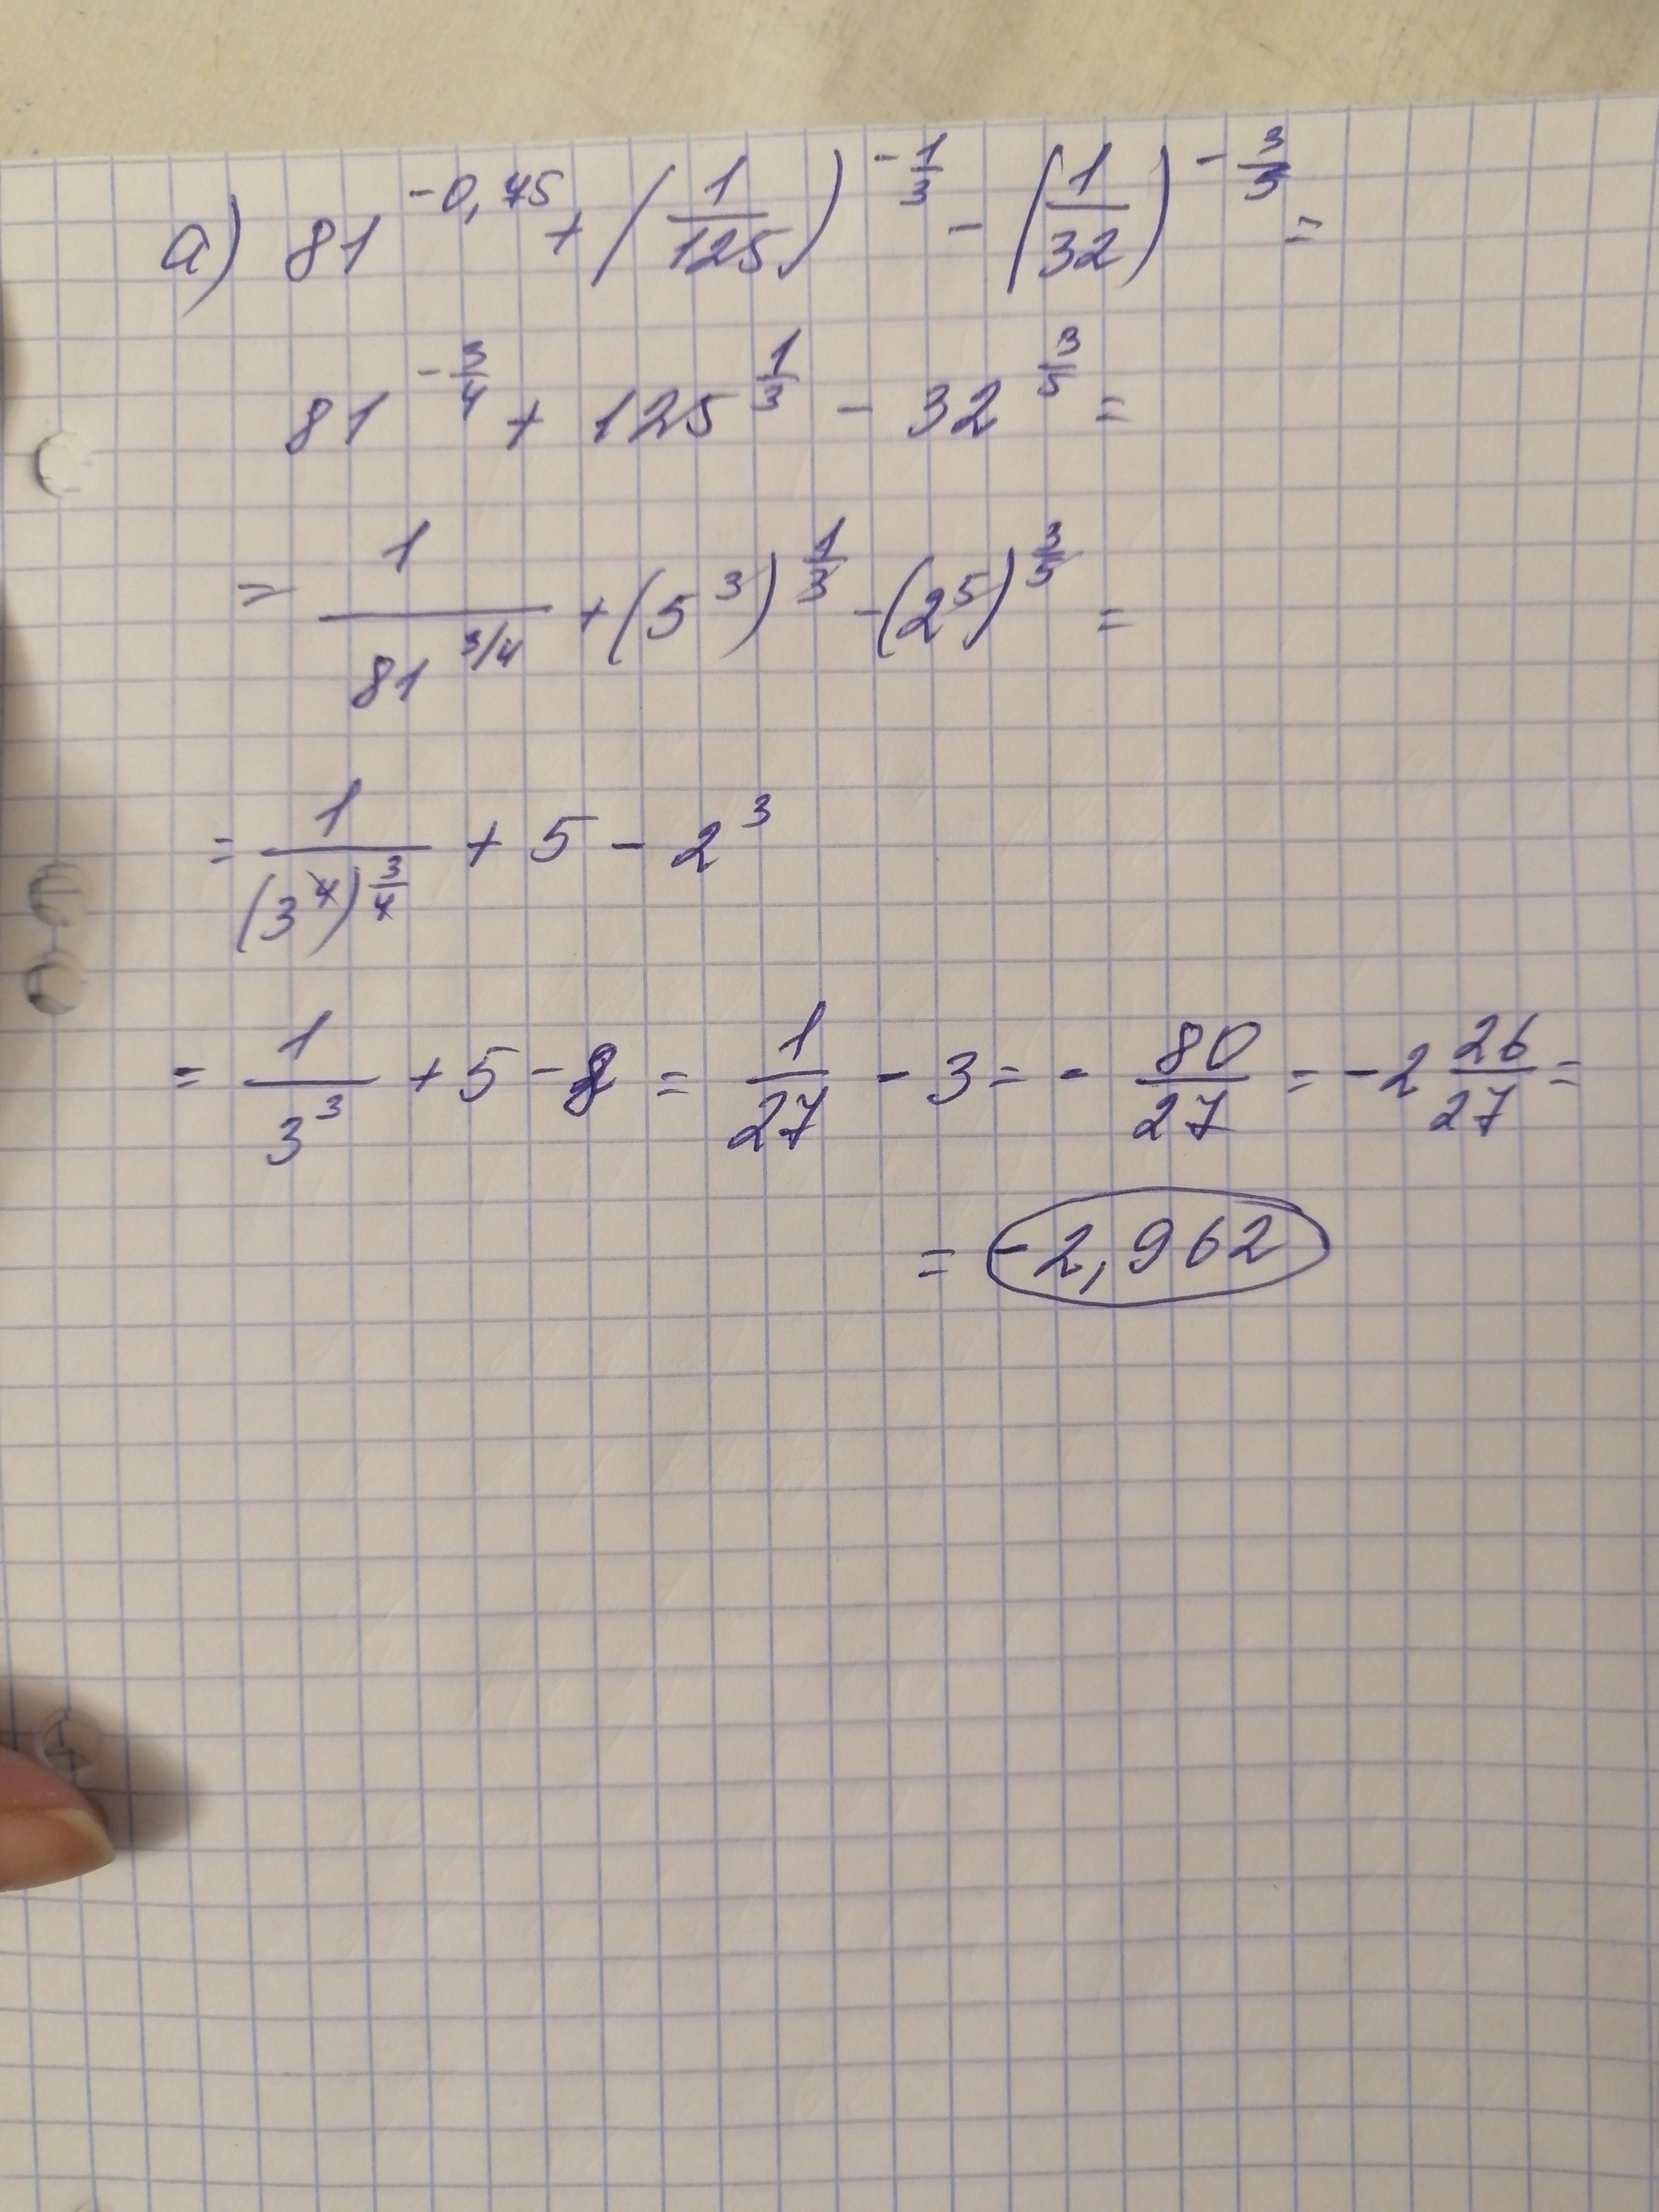 а) 81^(-0,75) + (1/125)^(-1/3) - (1/32)^(-3/5) =
81^(-3/4) + 125^(1/3) - 32^(3/5) =
= 1/81^(3/4) + (5^3)^(1/3) - (2^5)^(3/5) =
= 1/(3^4)^(3/4) + 5 - 2^3
= 1/3^3 + 5 - 8 = 1/27 - 3 = - 80/27 = -2 26/27 =
= -2,962